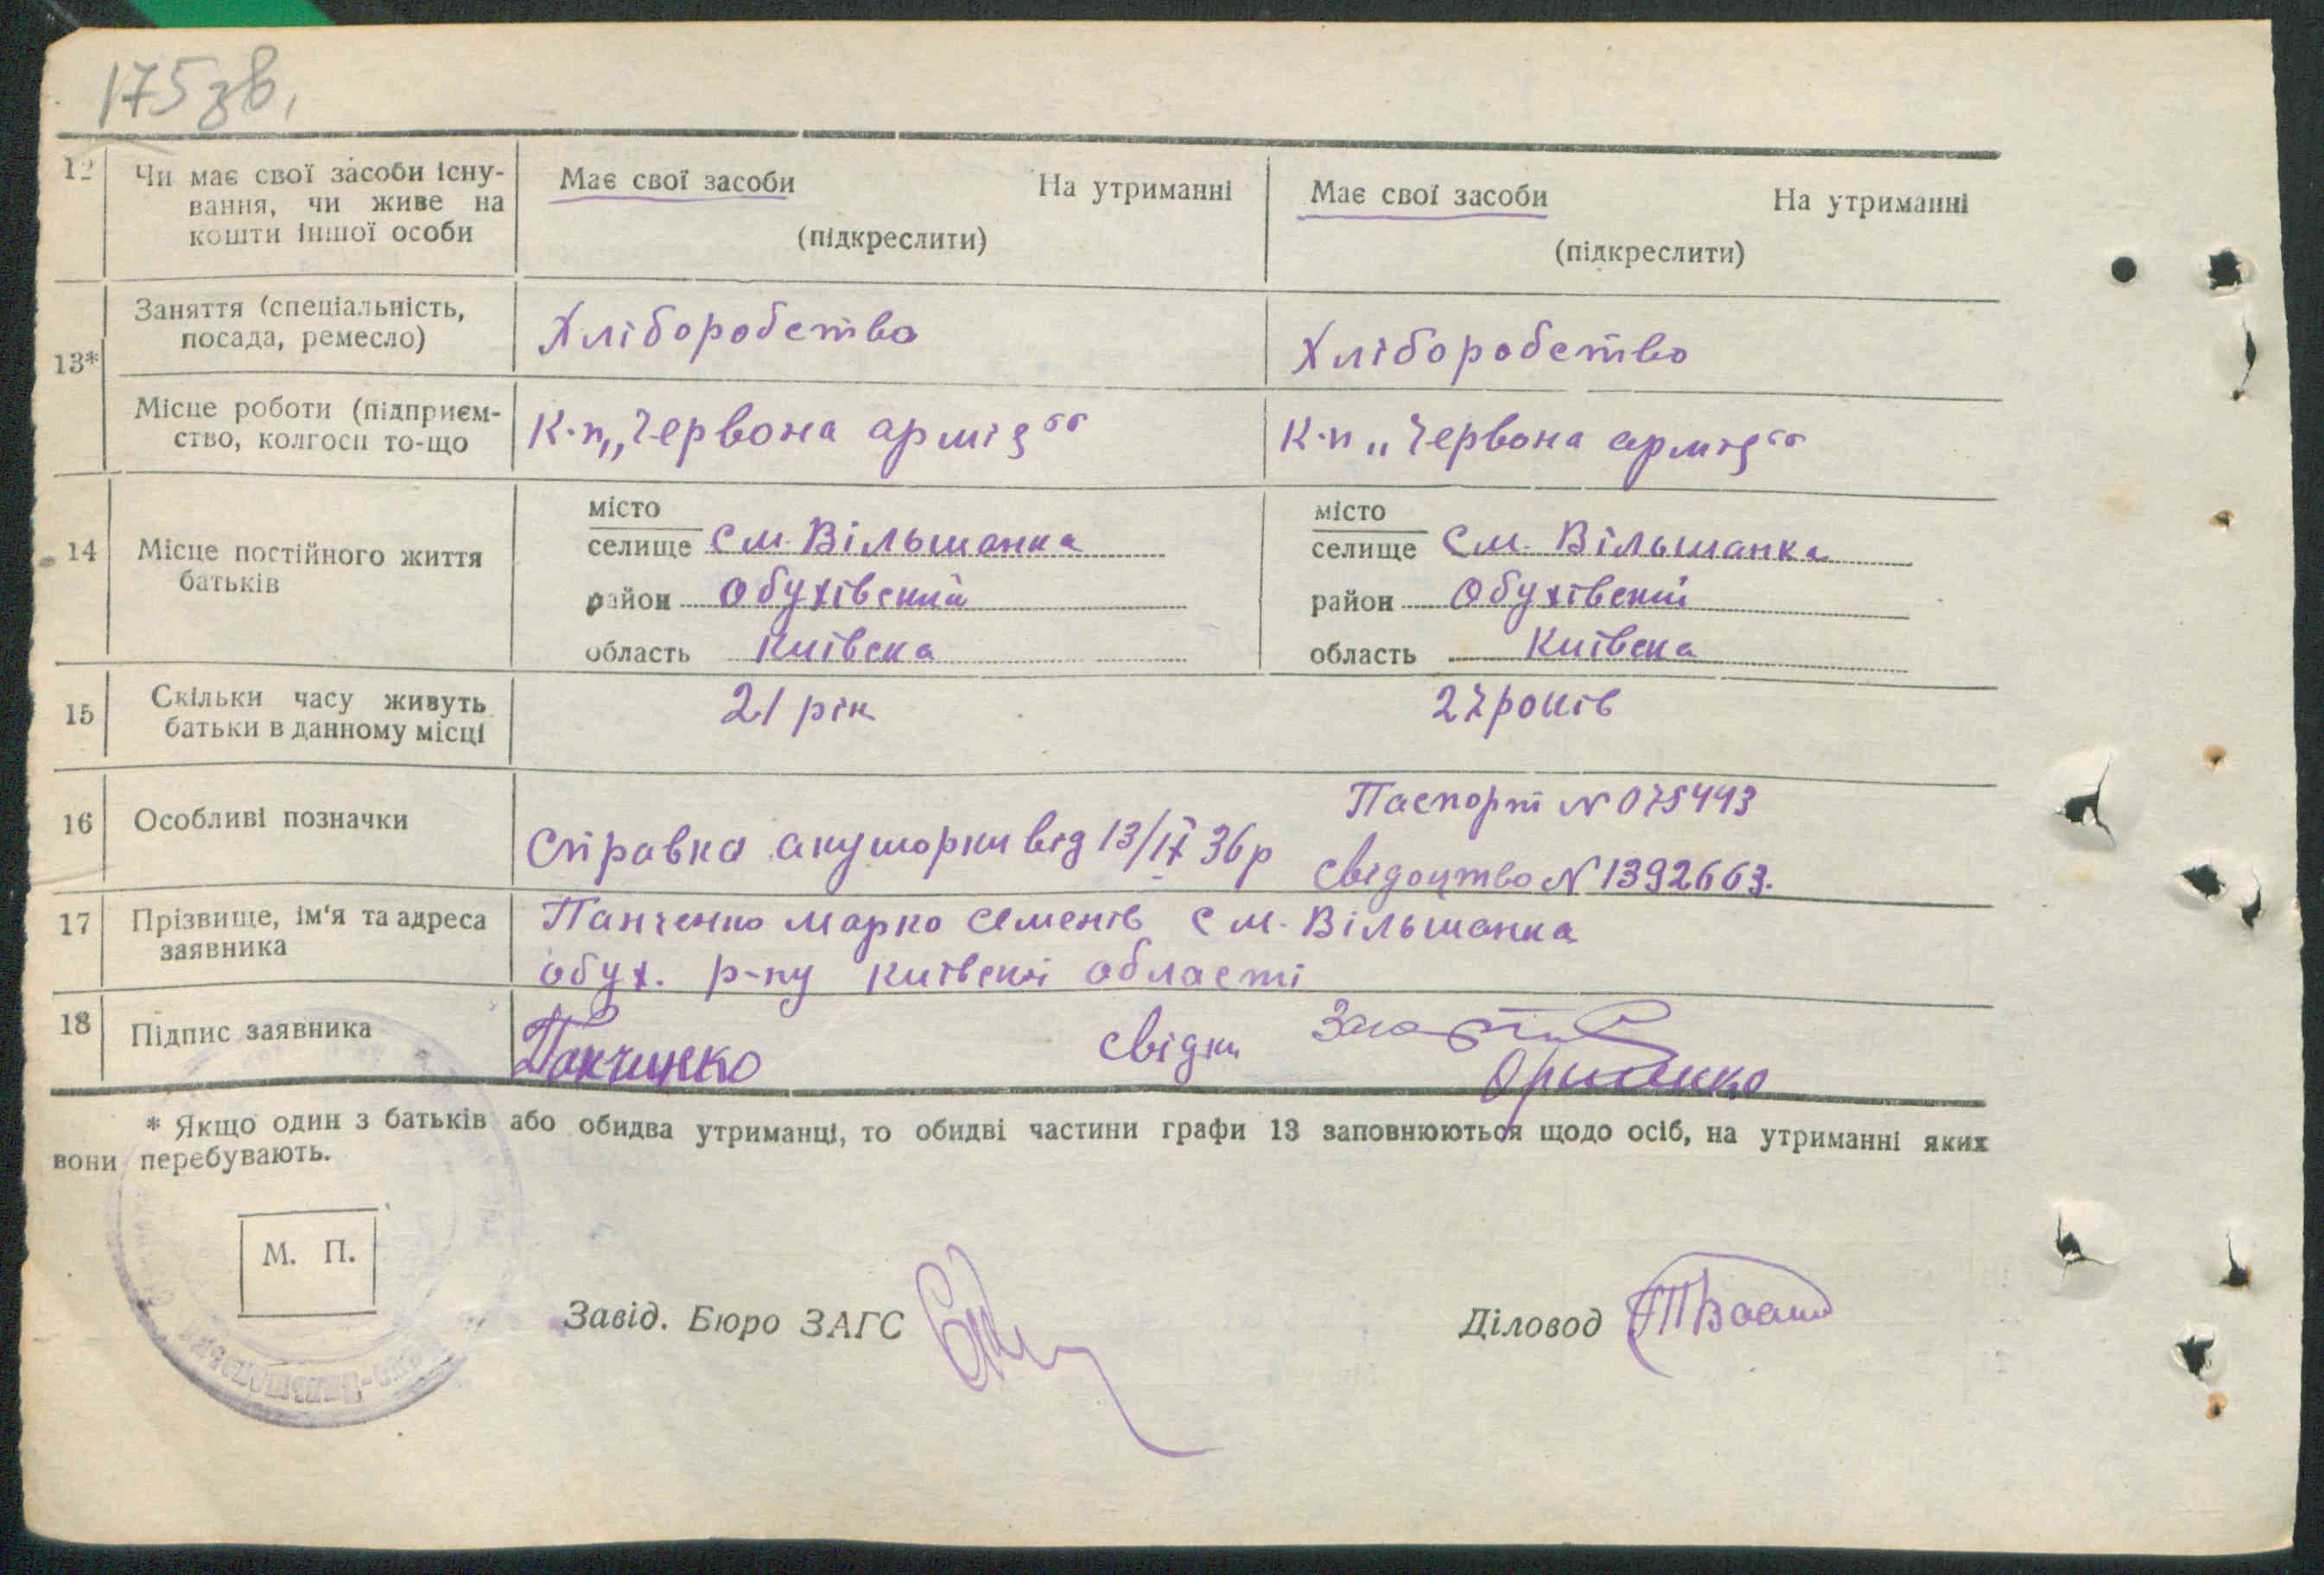 175 зв.
12 Чи має свої засоби існу- Має свої засоби На утриманні Має свої засоби На утриманні
вання, чи живе на
кошти іншої особи (підкреслити) (підкреслити)
13* Заняття (спеціальність, Хліборобство Хліборобство
посада, ремесло)
Місце роботи (підприєм- К-п „Червона армія“ К-п „Червона армія“
ство, колгосп то-що
14 Місце постійного життя
батьків
місто місто
селище См. Вільшанка селище См. Вільшанка
район Обухівский район Обухівский
область Київска область Київска
15 Скільки часу живуть 21 рік 27 років
батьки в данному місці
16 Особливі позначки Паспорт N 075443
Справка акушорки від 13/IX 36 р Свідоцтво N 1392663.
17 Прізвище, ім‘я та адреса Панченко Марко Семенів См. Вільшанка
заявника обух. р-ну Київскі області
18 Підпис заявника Панченко свідки
* Якщо один з батьків або обидва утриманці, то обидві частини графи 13 заповнюються щодо осіб, на утриманні яких
вони перебувають.
М. П.
Завід. Бюро ЗАГС Діловод